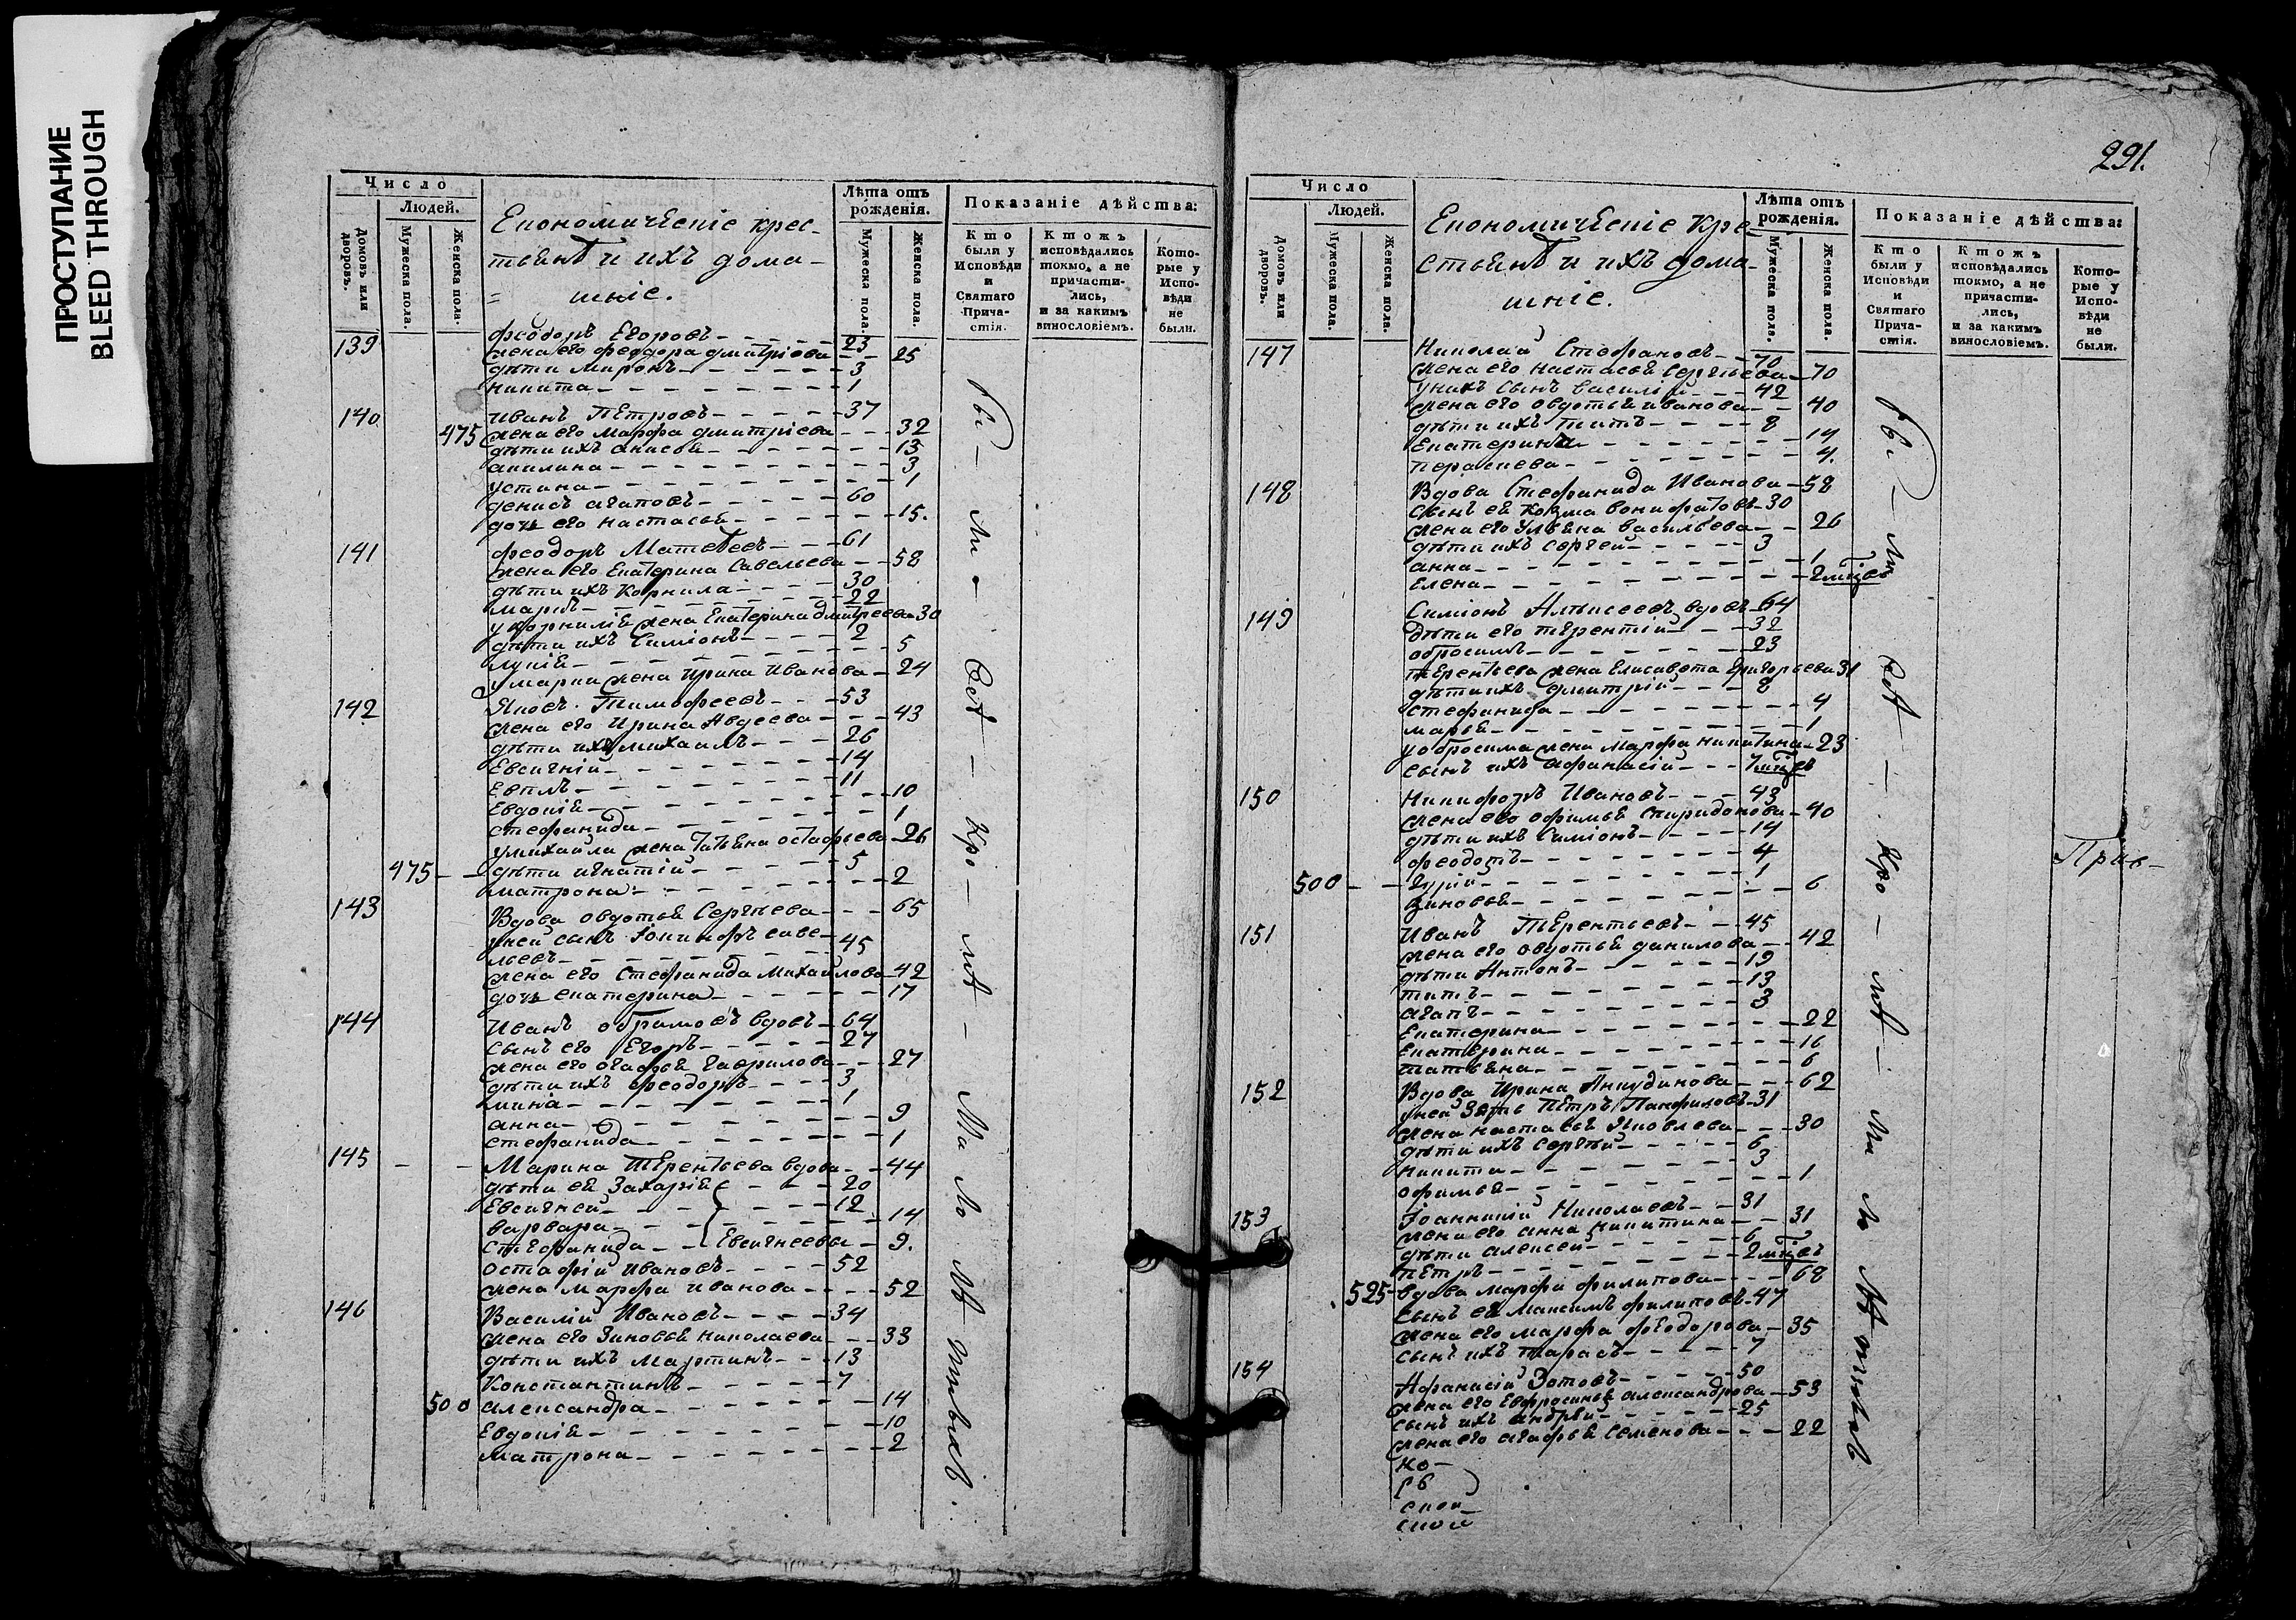 ПРОСТУПАНИЕ
BLEED THROUGH
Число
Людей.
Домовъ или дворовъ.
Мужеска пола.
Женска пола.
Економическіе крес-
тьянѣ и ихъ дома-
= шніе.
Лѣта отъ рожденія.
Мужеска пола.
Женска пола.
Показаніе дѣйства:
Кто были у Исповѣди и Святаго Прича-стія.
Ктожъ исповѣдались токмо, а не причасти-лись, и за какимъ винословіемъ.
Кото-рые у Испо-вѣди не были.
139 Феодоръ Егоровъ 23
жена его Феодора Дмитріева 25
дѣти Миронъ 3
Никита 1
140 Иванъ Петровъ 37
475 жена его Марфа Дмитріева 32
дѣти ихъ Анисья 13
Акилина 3
Устина 1
Денисъ Агаповъ 60
дочь его Настасья 15.
141 Феодоръ Матвеевъ 61
жена его Екатерина Савельева 58
дѣти ихъ Корнила 30
Маркъ 22
у Корниліи жена Екатерина Дмитреева 30
дѣти ихъ Симіонъ 2
Лукія 5
у Марки жена Ирина Иванова 24
142 Яковъ Тимофеевъ 53
жена его Ирина Авдеева 43
дѣти ихъ Михаилъ 26
Евсигній 14
Евплъ 11
Евдокія 10
Стефанида 1
у Михайла жена Татьяна Остафьева 26
475 дѣти Игнатій 5
Матрона 2
143 Вдова Овдотья Сергѣева 65
у ней сынъ Никифоръ Саве-
льевъ 45
жена его Стефанида Михайлова 42
дочь Екатерина 17
144 Иванъ Обрамовъ вдовъ 64
сынъ его Егоръ 27
жена его Огафья Гаврилова 27
дѣти ихъ Феодоръ 3
Мина 1
Анна 9
Стефанида 1
145 Марина Терентьева вдова 44
дѣти ея Захарія 20
Евсигней 12
Варвара 14
Стефанида Евсигнеевы 9.
Остафій Ивановъ 52
жена Марфа Иванова 52
146 Василій Ивановъ 34
жена его Зиновья Николаева 33
дѣти ихъ Мартинъ 13
Константинъ 7
500 Александра 14
Евдокія 10
Матрона 2
бы - ли - всѣ - кро - мѣ - Ма ло лѣ тныхъ.
291.
Число
Людей.
Домовъ или дворовъ.
Мужеска пола.
Женска пола.
Економическіе кре-
стьянѣ и ихъ дома-
шніе.
Лѣта отъ рожденія.
Мужеска пола.
Женска пола.
Показаніе дѣйства:
Кто были у Исповѣди и Святаго Прича-стія.
Ктожъ исповѣдались токмо, а не причасти-лись, и за какимъ винословіемъ.
Кото-рые у Испо-вѣди не были.
147 Николай Стефановъ 70
жена его Настасья Сергѣева 70
у нихъ сынъ Василій 42
жена его Овдотья Иванова 40
дѣти ихъ Титъ 8
Екатерина 14
Параскева 4.
148 Вдова Стефанида Иванова 58
сынъ ея Козма Вонифатовъ 30
жена его Ульяна Васильева 26
дѣти ихъ Сергей 3
Анна 1
Елена 2 мцъ
149 Симіонъ Алѣксеевъ вдовъ 64
дѣти его Терентій 32
Обросимъ 23
Терентьева жена Елисавета Григорьева 31
дѣти ихъ Дмитрій 8
Стефанида 4
Марья 1
у Обросима жена Марфа Никитина 23
сынъ ихъ Афанасій 7 мцъ
150 Никифоръ Ивановъ 43
жена его Офимья Спиридонова 40
дѣти ихъ Симіонъ 14
Феодотъ 4
500 Гурій 1
Зиновья 6
151 Иванъ Терентьевъ 45
жена его Овдотья Данилова 42
дѣти Антонъ 19
Титъ 13
Агапъ 3
Екатерина 22
Екатерина 16
Татьяна 6
152 Вдова Ирина Анкудинова 62
у ней зять Петръ Панфиловъ 31
жена Настасья Яковлева 30
дѣти ихъ Сергѣй 6
Никита 3
Офимья 1
153 Іоанникій Николаевъ 31
жена его Анна Никитина 31
дѣти Алексей 6
Петръ 2 мцъ
525 вдова Марфа Филипова 68
сынъ ея Максимъ Филиповъ 47
жена его Марфа Феодорова 35
сынъ ихъ Тарасъ 7
154 Афанасій Зотовъ 50
жена его Евфросинья Александрова 53
сынъ ихъ Андрей 25
жена его Агафья Семенова 22
бы - ли всѣ - кро - мѣ - Ма ло лѣ тныхъ